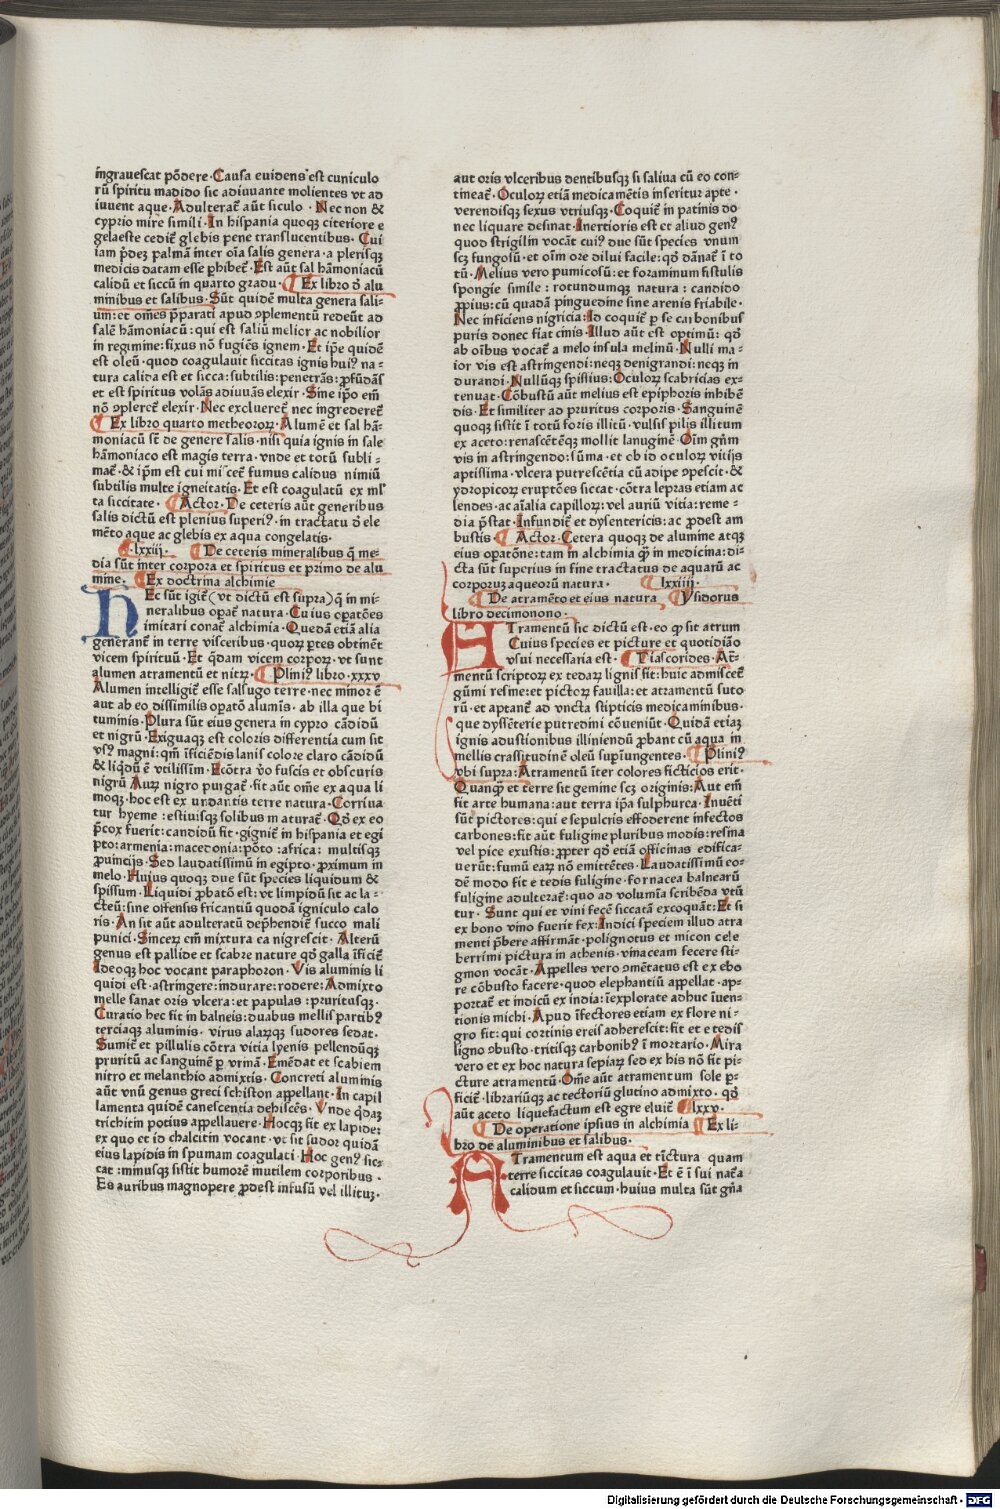 ingrauescat põdere · Causa euidens est cuniculo
rũ spiritu madido sic adiuuante molientes vt ad
iuuent aque · Adulterat̃ aũt siculo · Nec non &
cyprio mire simili · In hispania quoqꝫ citeriore e
gelaeste cedit̃ glebis pene translucentibus · Cui
iam p̃deꝫ palmã inter oĩa salis genera · a plerisqꝫ
medicis datam esse phibet̃ · Est aũt sal hãmoniacũ
calidũ et siccũ in quarto gradu · ¶ Ex libro ð alu
minibus et salibus · Sũt quidẽ multa genera sali-
um: et om̃es p̃parati apud ꝯplementũ redeũt ad
salẽ hãmoniacũ: qui est saliũ melior ac nobilior
in regimine: fixus nõ fugiẽs ignem · Et ip̃e quidẽ
est oleũ · quod coagulauit siccitas ignis hui⁹ na-
tura calida est et sicca: subtilis: penetrãs: ꝓfũdãs
et est spiritus volãs adiuuãs elexir · Sine ip̃o em̃
nõ ꝯpleret̃ elexir · Nec exclueret̃ nec ingrederet̃
¶ Ex libro quarto metheoroꝝ · Alumẽ et sal hã-
moniacũ st̃ de genere salis · nisi quia ignis in sale
hãmoniaco est magis terra · vnde et totũ subli-
mat̃ · & ip̃m est cui miscet̃ fumus calidus nimiũ
subtilis multe igneitatis · Et est coagulatũ ex ml̃
ta siccitate · ¶ Actor · De ceteris aũt generibus
salis dictũ est plenius superi⁹ · in tractatu ð ele
mẽto aque ac glebis ex aqua congelatis ·
¶ · lxxiij · ¶ De ceteris mineralibus q̃ me-
dia sũt inter corpora et spiritus et primo de alu
mine · ¶ Ex doctrina alchimie
HEc sũt igit̃ (vt dictũ est supra) q̃ in mi-
neralibus opat̃ natura · Cuius opatões
imitari conat̃ alchimia · Quedã etiã alia
generant̃ in terre visceribus · quoꝝ ꝑtes obtinẽt
vicem spirituũ · Et q̃dam vicem corpoꝝ · vt sunt
alumen atramentũ et nitꝝ · ¶ Plini⁹ libro · xxxv
Alumen intelligit̃ esse salsugo terre · nec minor ẽ
aut ab eo dissimilis opatõ alumĩs · ab illa que bi
tuminis · Plura sũt eius genera in cypro cãdidũ
et nigrũ · Exiguaqꝫ est coloris differentia cum sit
vs⁹ magni: qm̃ ĩficiẽdis lanis colore claro cãdidũ
& liq̃dũ ẽ vtilissim̃ · Ecõtra v̾o fuscis et obscuris
nigrũ Auꝝ nigro purgat̃ · fit aũt om̃e ex aqua li
moqꝫ · hoc est ex vndantis terre natura · Corriua
tur hyeme: estiuisqꝫ solibus maturat̃ · Qð ex eo
p̃cox fuerit: candidũ fit · gignit̃ in hispania et egi
pto: armenia: macedonia: põto: africa: multisqꝫ
ꝓuincijs · Sed laudatissimũ in egipto · ꝓximum in
melo · Huius quoqꝫ due sũt species liquidum &
spissum · Liquidi ꝓbatõ est: vt limpidũ sit ac la-
cteũ: sine offensis fricantiũ quodã igniculo calo
ris · An sit aũt adulteratũ dep̃hendit̃ succo mali
punici · Sinceꝝ em̃ mixtura ea nigrescit · Alterũ
genus est pallide et scabre nature qð galla ĩficit̃
Ideoqꝫ hoc vocant paraphoron · Vis aluminis li
quidi est · astringere: indurare: rodere: Admixto
melle sanat oris vlcera: et papulas: pruritusqꝫ ·
Curatio hec fit in balneis: duabus mellis partib⁹
terciaqꝫ aluminis · virus alaꝝqꝫ sudores sedat ·
Sumit̃ et pillulis cõtra vitia lyenis pellendũqꝫ
pruritũ ac sanguinẽ ꝑ vrinã · Emẽdat et scabiem
nitro et melanthio admixtis · Concreti aluminis
aũt vnũ genus greci schiston appellant · In capil
lamenta quidẽ canescentia dehiscẽs · Vnde q̃daꝫ
trichitin potius appellauere · Hocqꝫ fit ex lapide:
ex quo et id chalcitin vocant · vt sit sudor quidã
eius lapidis in spumam coagulati · Hoc gen⁹ sic-
cat: minusqꝫ sistit humorẽ mutilem corporibus ·
Es auribus magnopere ꝓdest infusũ vel illituꝫ ·
aut oris vlceribus dentibusqꝫ si saliua cũ eo con-
tineat̃ · Oculoꝝ etiã medicamẽtis inseritur apte ·
verendisqꝫ sexus vtriusqꝫ · Coquit̃ in patinis do
nec liquare desinat · Inertioris est et aliud gen⁹
quod strigilin vocãt cui⁹ due sũt species vnum
scꝫ fungosũ · et oĩm ore dilui facile: qð dãnat̃ ĩ to
tũ · Melius vero pumicosũ: et foraminum fistulis
spongie simile: rotundumqꝫ natura: candido
ꝓpius: cũ quadã pinguedine sine arenis friabile ·
Nec inficiens nigricia: Id coquit̃ ꝑ se carbonibus
puris donec fiat cinis · Illud aũt est optimũ: qð
ab oĩbus vocat̃ a melo insula melinũ · Nulli ma-
ior vis est astringendi: neqꝫ denigrandi: neqꝫ in
durandi · Nullũqꝫ spissius: Oculoꝝ scabricias ex-
tenuat · Cõbustũ aũt melius est epiphoris inhibẽ
dis · Et similiter ad pruritus corporis · Sanguinẽ
quoqꝫ sistit ĩ totũ foris illicũ · vulsis pilis illitum
ex aceto: renascẽtẽqꝫ mollit lanuginẽ · Oĩm gñm
vis in astringendo: sũma · et ob id oculoꝝ vitijs
aptissima · vlcera putrescẽtia cũ adipe ꝯpescit · &
ydropicoꝝ eruptões siccat · cõtra lepras etiam ac
lendes · ac aĩalia capilloꝝ: vel auriũ vitia: reme-
dia p̃stat · Infundit̃ et dysentericis: ac ꝓdest am
bustis · ¶ Actor · Cetera quoqꝫ de alumine atqꝫ
eius opatõne: tam in alchimia q̃ꝫ in medicina: di-
cta sũt superius in fine tractatus de aquarũ ac
corporuꝫ aqueorũ natura · ¶ lxxiiij ·
¶ De atramẽto et eius natura ¶ Ysidorus
libro decimonono ·
ATramentũ sic dictũ est · eo ꝙ sit atrum
Cuius species et picture et quotidião
vsui necessaria est · ¶ Diascorides · At̃-
mentũ scriptoꝝ ex tedaꝝ lignis fit: huic admiscet̃
gũmi resine: et pictoꝝ fauilla: et atramentũ suto
rũ · et aptant̃ ad vncta stipticis medicaminibus ·
que dyssẽterie putredini cõueniũt · Quidã etiaꝫ
ignis adustionibus illiniendũ ꝓbant cũ aqua in
mellis crassitudinẽ oleũ sup̃iungentes · ¶ Plini⁹
vbi supra: Atramentũ ĩter colores ficticios erit ·
Quanq̃ꝫ et terre sit gemine scꝫ originis: Aut em̃
fit arte humana: aut terra ip̃a sulphurea · Inuẽti
sũt pictores: qui e sepulcris effoderent infectos
carbones: fit aũt fuligine pluribus modis: resina
vel pice exustis: ꝓpter qð etiã officinas edifica-
uerũt: fumũ eaꝝ nõ emittẽtes · Laudatissimũ eo-
dẽ modo fit e tedis fuligine · fornacea balnearũ
fuligine adulterat̃: quo ad volumĩa scribẽda vtũ
tur · Sunt qui et vini fecẽ siccatã excoquãt: Et si
ex bono vino fuerit fex: Indici speciem illud atra
menti p̃bere affirmãt · polignotus et micon cele
berrimi pictura in athenis · vinaceam fecere sti-
gmon vocãt · Appelles vero ꝯmẽtatus est ex ebo
re cõbusto facere · quod elephantiũ appellat · ap-
portat̃ et indicũ ex india: ĩexplorate adhuc ĩuen-
tionis michi · Apud ĩfectores etiam ex flore ni-
gro fit: qui cortinis ereis adherescit: fit et e tedis
ligno ꝯbusto · tritisqꝫ carbonib⁹ ĩ mortario · Mira
vero et ex hoc natura sepiaꝝ sed ex his nõ fit pi-
cture atramentũ · Om̃e aũt atramentum sole ꝑ-
ficit̃: librariũqꝫ ac tectoriũ glutino admixto · qð
aũt aceto liquefactum est egre eluit̃ ¶ lxxv ·
¶ De operatione ipsius in alchimia ¶ Ex li-
bro de aluminibus et salibus ·
ATramentum est aqua et tĩctura quam
terre siccitas coagulauit · Et ẽ ĩ sui nat̃a
calidum et siccum · huius multa sũt gñra
Digitalisierung gefördert durch die Deutsche Forschungsgemeinschaft - DFG